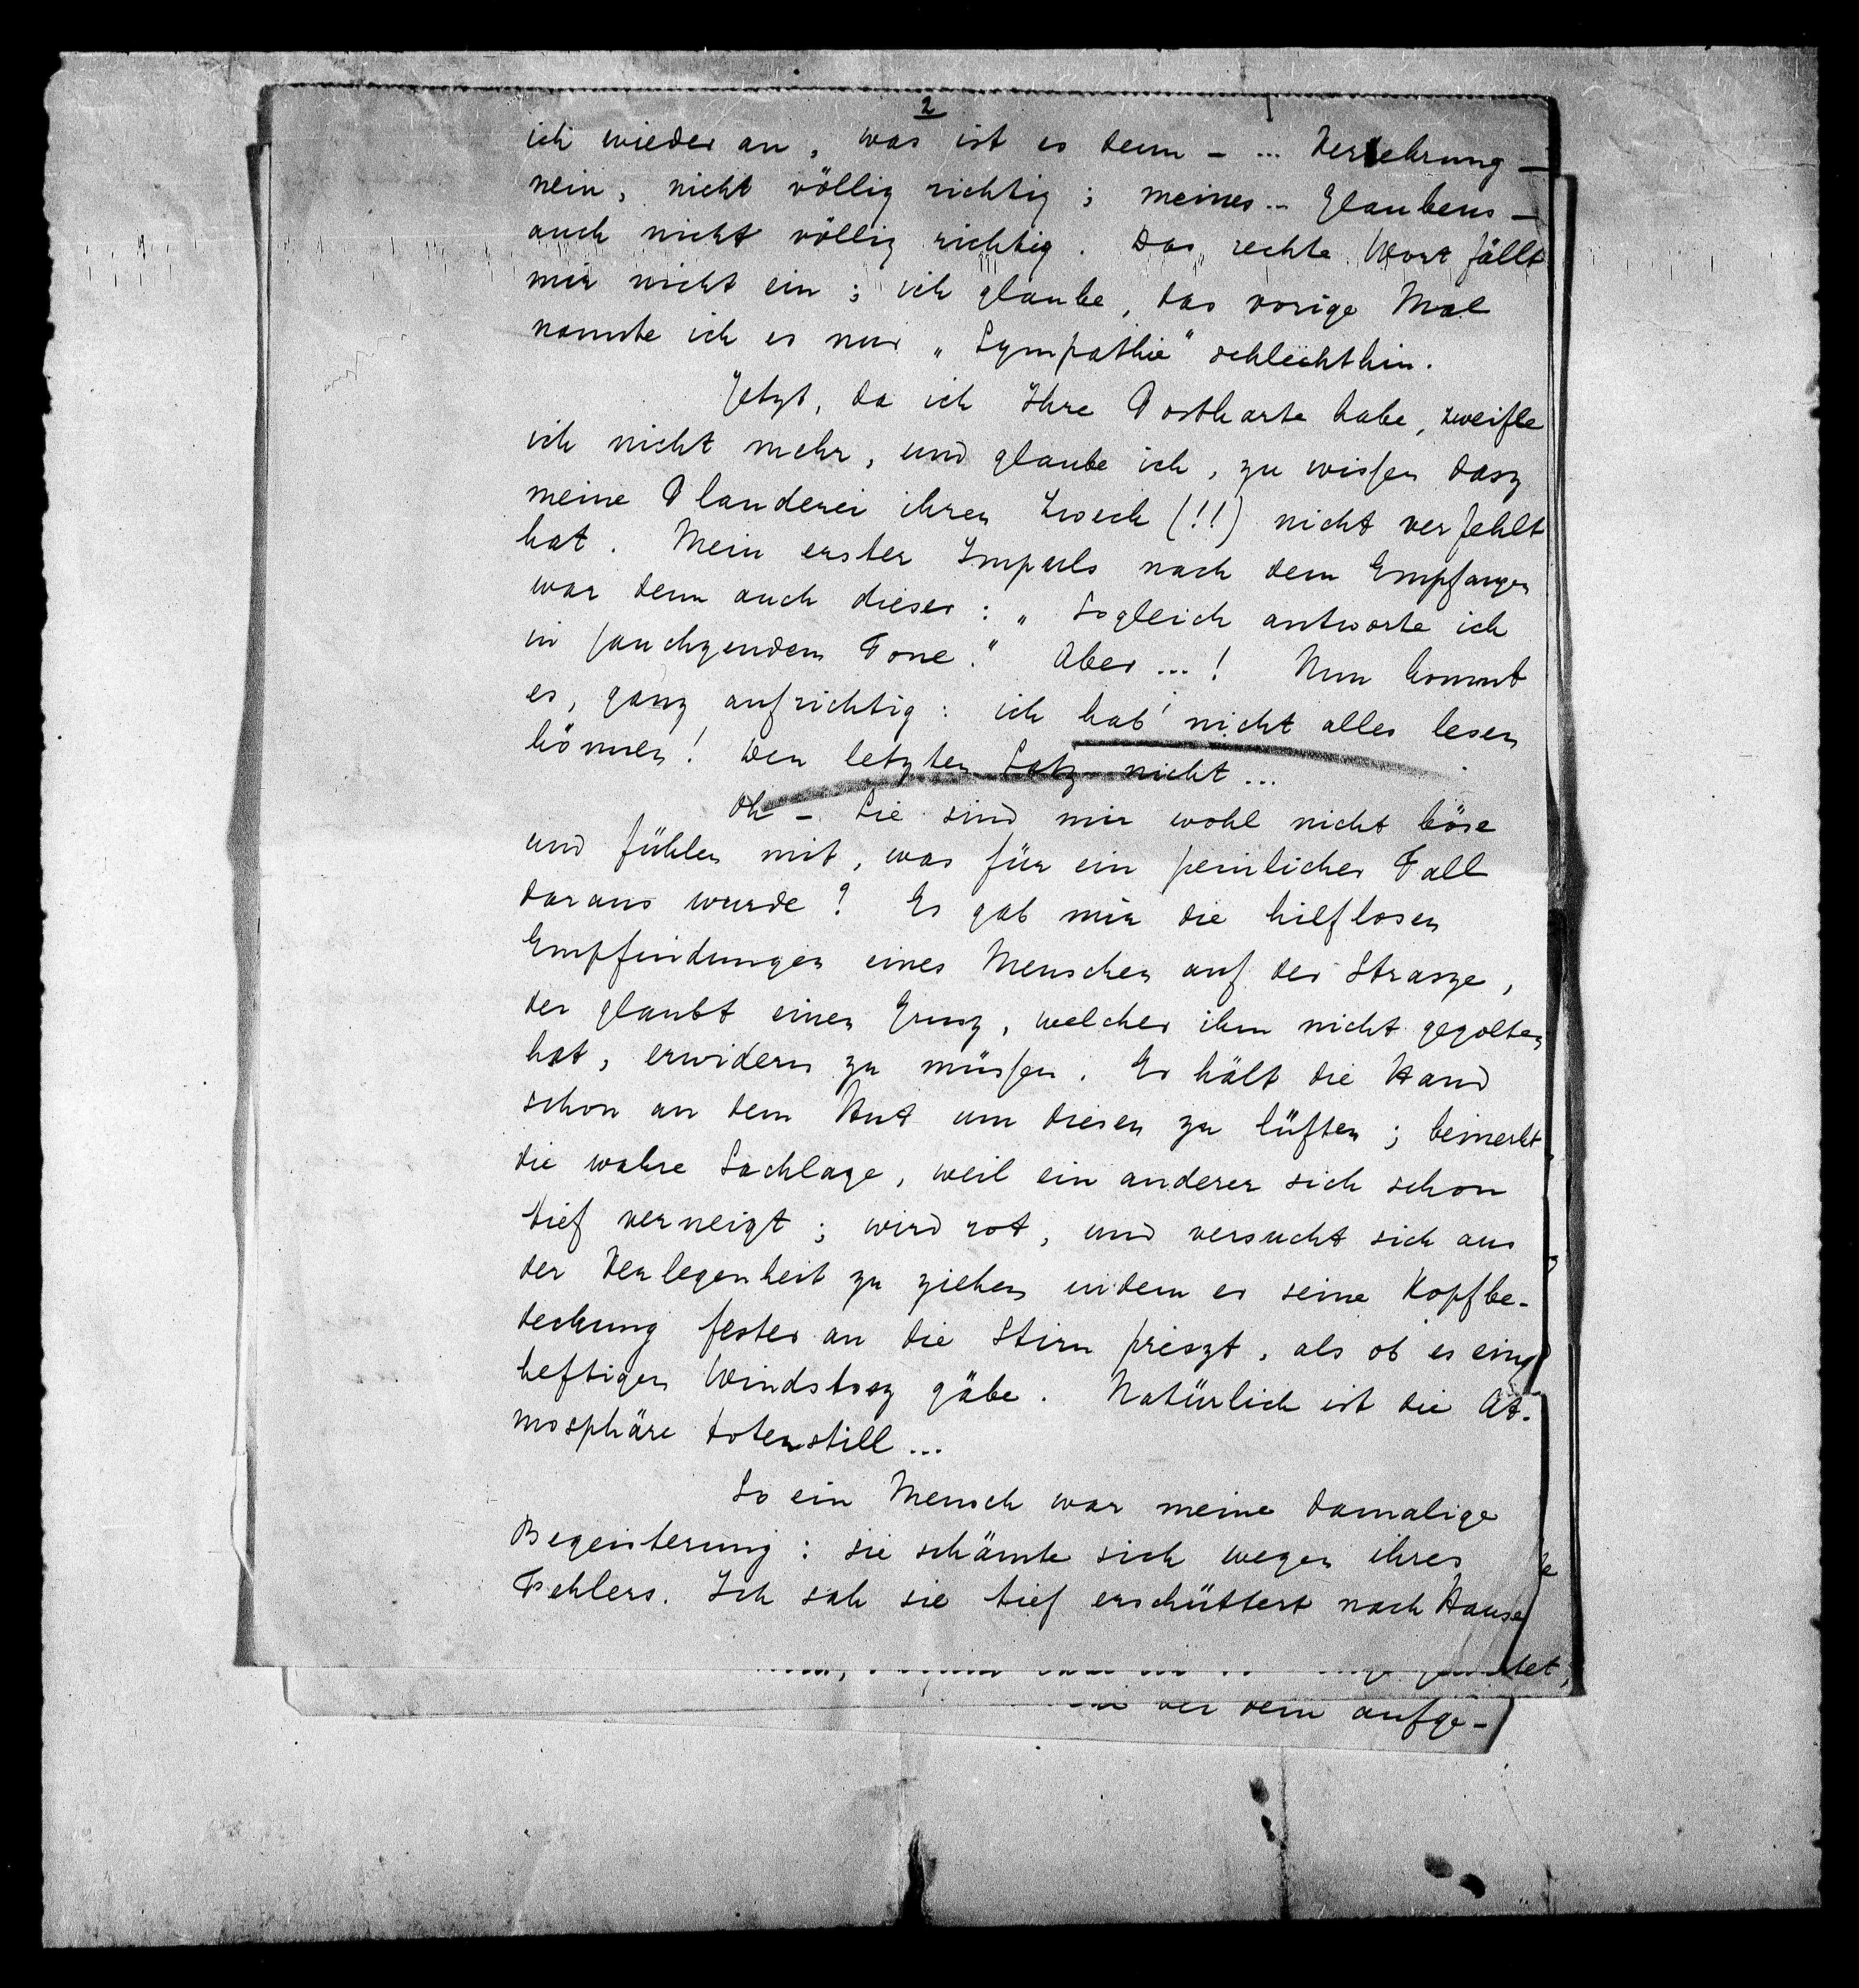 2
ich wieder an, was ist es denn - ... Verehrung -
nein, nicht völlig richtig; meines... Glaubens -
auch nicht völlig richtig. Das rechte Wort fällt
mir nicht ein; ich glaube, das vorige Mal
nannte ich es nur „Sympathie" schlechthin.
Jetzt, da ich Ihre Postkarte habe, zweifle
ich nicht mehr, und glaube ich, zu wissen dasz
meine Plauderei ihren Zweck (!!) nicht verfehlt
hat. Mein erster Impuls nach dem Empfangen
war denn auch dieser: „Sogleich antworte ich
in jauchzendem Tone." Aber...! Nun kommt
es, ganz aufrichtig: ich hab' nicht alles lesen
können! Den letzten Satz nicht...
Oh - Sie sind mir wohl nicht böse
und fühlen mit, was für ein peinlicher Fall
daraus wurde? Es gab mir die hilflosen
Empfindungen eines Menschen auf der Strasze,
der glaubt einen Grusz, welcher ihm nicht gegolten
hat, erwidern zu müssen. Er hält die Hand
schon an dem Hut um diesen zu lüften; bemerkt
die wahre Sachlage, weil ein anderer sich schon
tief verneigt; wird rot, und versucht sich aus
der Verlegenheit zu ziehen indem er seine Kopfbe-
deckung fester an die Stirn preszt, als ob es einen
heftigen Windstosz gäbe. Natürlich ist die At-
mosphäre totenstill...
So ein Mensch war meine damalige
Begeisterung: sie schämte sich wegen ihres
Fehlers. Ich sah sie tief erschüttert nach Hause
tet,
dem aufge-